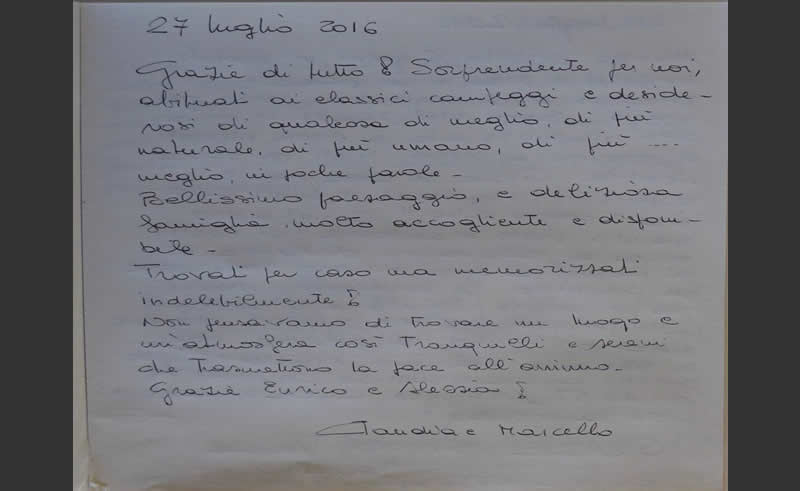 27 luglio 2016
Grazie di tutto! Sorprendente per noi,
abituati ai classici campeggi e deside-
rosi di qualcosa di meglio, di più
naturale, di più umano, di più ....
meglio, in poche parole -
Bellissimo paesaggio, e deliziosa
famiglia, molto accogliente e dispon-
bile -
Trovati per caso ma memorizzati
indelebilmente!
Non pensavamo di trovare un luogo e
un'atmosfera così tranquilli e sereni
che trasmettono la pace all'animo -
Grazie Enrico e Alessia!
Claudia e Marcello